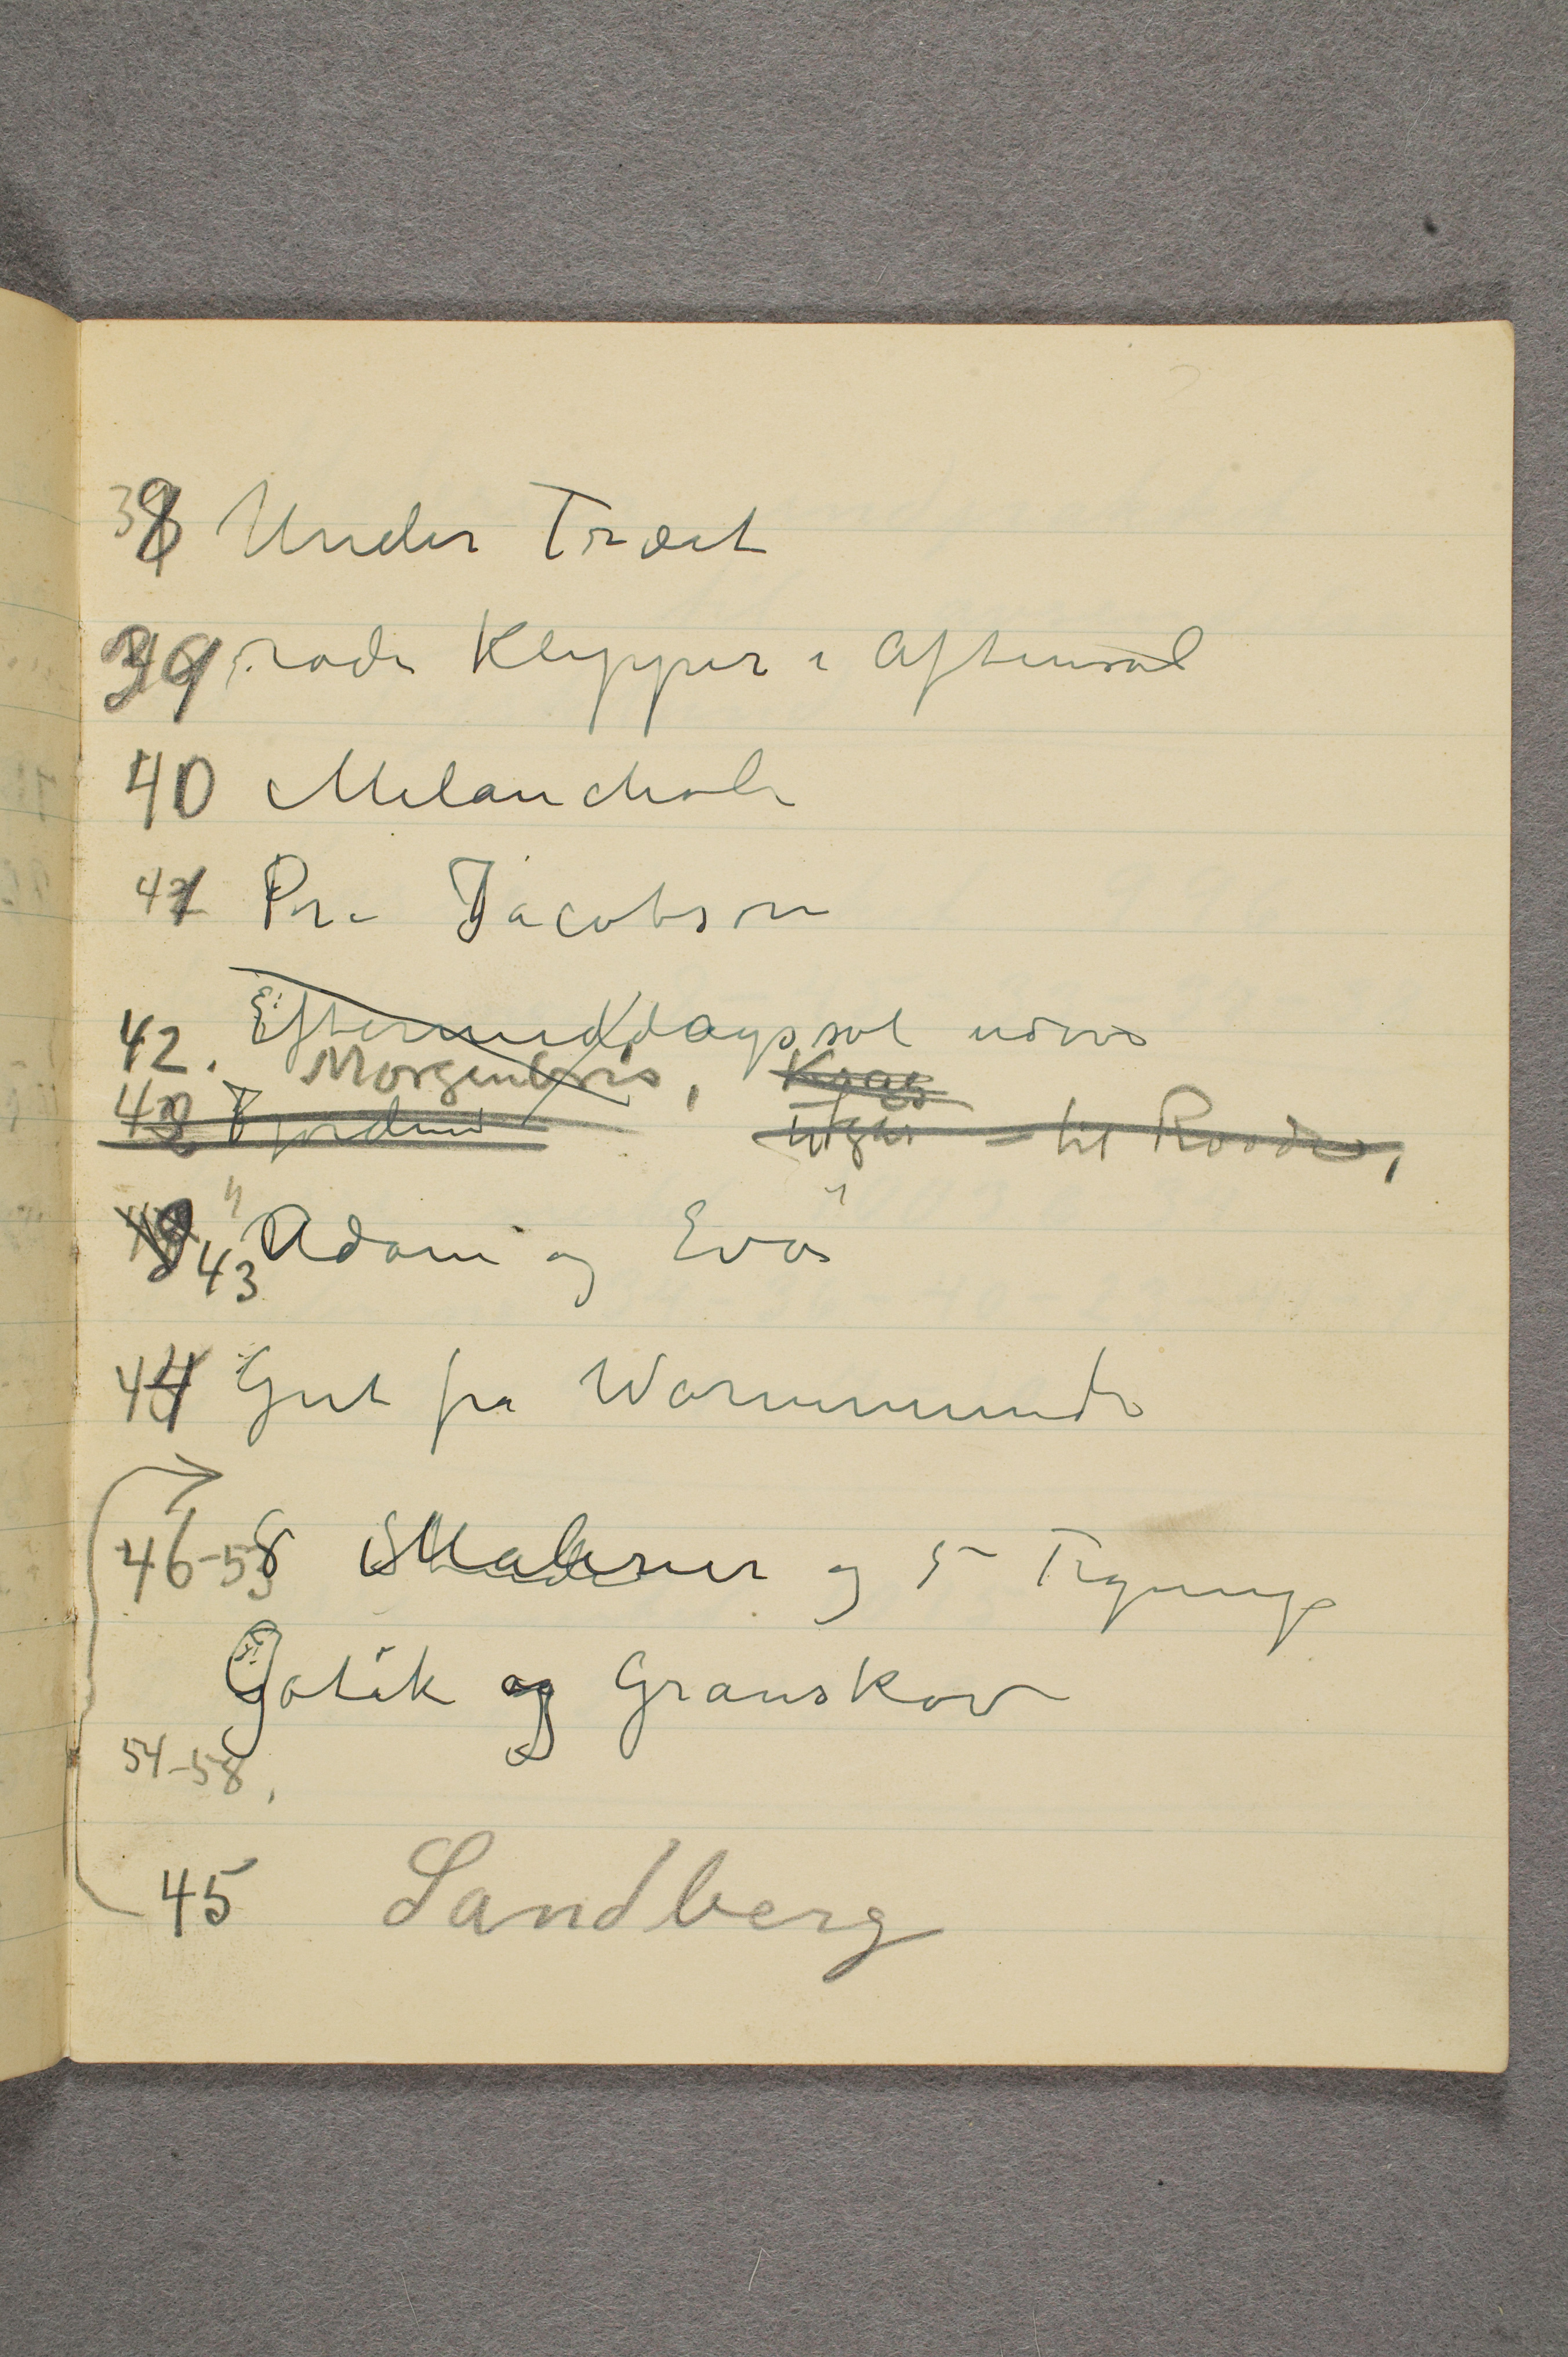 38 Under Træet
39 røde Klipper i Aftensol
40 Melancholi
41 Pr. Jacobson
Eftermiddagssol
42. Morgenbris,
43 Fjorden utgår – til Roode,
43 "Adam og Eva"
44 Gut fra Warnemunde
46-53 8 Malerier og 5 Tegninger
Gotik og Granskov
54-58.
45 Sandberg